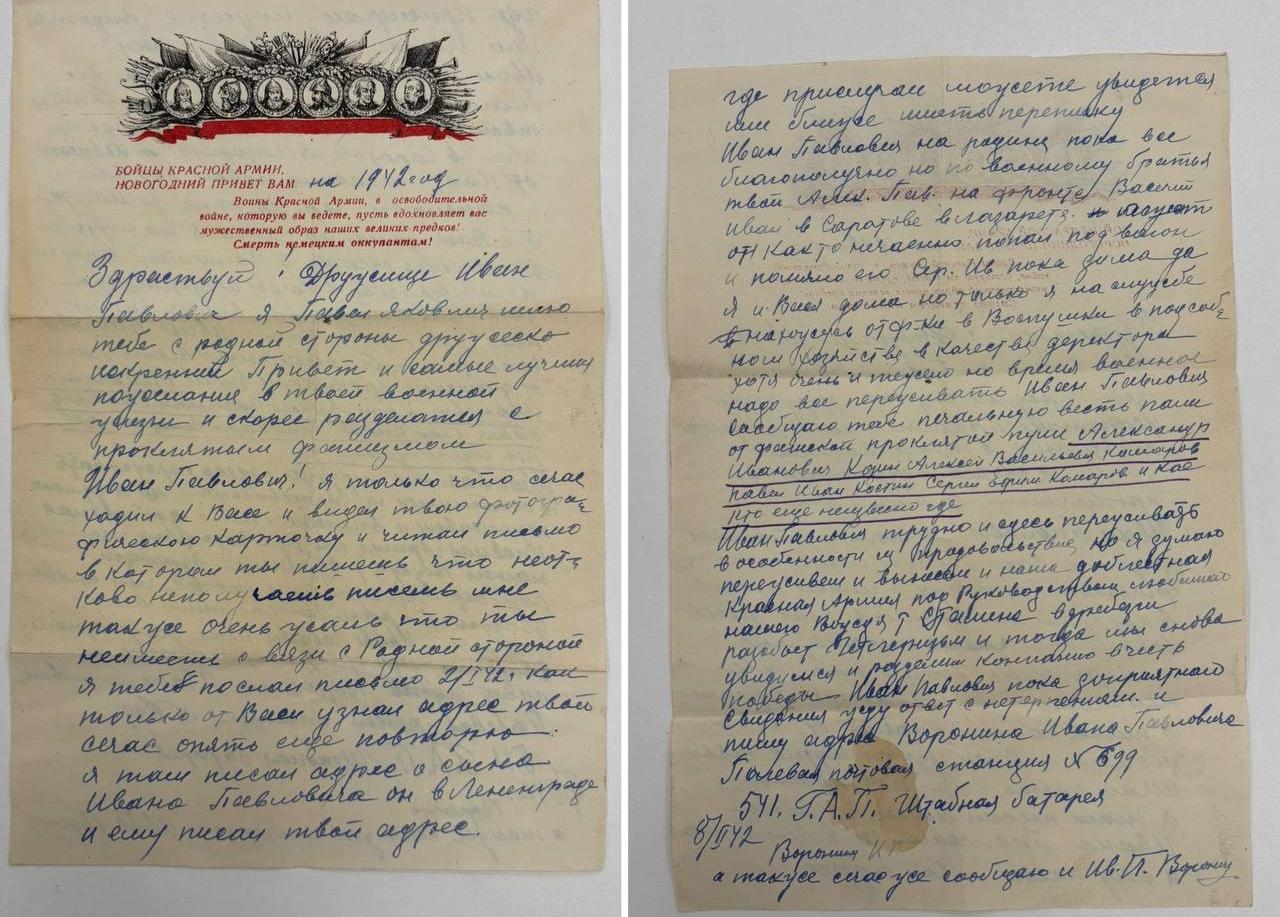 БОЙЦЫ КРАСНОЙ АРМИИ,
НОВОГОДНИЙ ПРИВЕТ ВАМ на 1942 год
Воины Красной Армии, в освободительной
войне, которую вы ведете, пусть вдохновляет вас
мужественный образ наших великих предков!
Смерть немецким оккупантам!
Здраствуй Дружище Иван
Павлович я Павел Яковлич шлю
тебе с родной стороны дружеско
искренний Привет и самые лучшии
пожелания в твоей военной
жизни и скорее разделатся с
проклятым фашизмом
Иван Павлович! я только что счас
ходил к Васе и видел твою фотогра-
фическою карточку и читал письмо
в котором ты пишешь что неот-
ково неполучаешь писем мне
также очень жаль что ты
неимееш связи с Родной стороной
я тебе послал письмо 2/II 42 г как
только от Васи узнал адрес твой
счас опять еще повторю
я там писал адрес о сына
Ивана Павловича он в Ленинграде
и ему писал твой адрес.
где прислучаи можете увидется
или ближе иметь переписку
Иван Павлович на родине пока все
благополучно но по военному братья
твой Алек. Пав. на фронте Василий
Иван в Саратове в лазарете.
он как то нечаенно попал под вагон
и помяло его. Сер. Ив пока дома да
я и Вася дома но только я на службе
нахожусь от ф-ки в Воспушки в подсоб-
ном хозяйстве в качестве директора
хотя очень и тежело но время военное
надо все переживать Иван Павлович
сообщаю тебе печальную весть пали
от фашиской проклятой пули Александр
Иванович Кодин Алексей Васильевич Кашаров
Павел Иван Костин Сергей Комаров и кое
кто еще неизвесно где
Иван Павлович трудно и здесь переживать
в особенности из продовольствие, но я думаю
переживем и вынесем и наша доблестная
Красная Армия под Руководством любимого
нашего Вождя Т Сталина вдребезги
разобьет Гитлеризм и тогда мы снова
увидимся и разделим компанию вчесть
победы Иван Павлович пока доприятного
Свидания жду ответ с нетерпением. и
пишу адрес Воронина Ивана Павловича
Полевая почтовая станция № 699
541. Г.А.П. Штабная батарея
8/II 42
Воронину И П
а также счас же сообщаю и Ив. П. Ворону